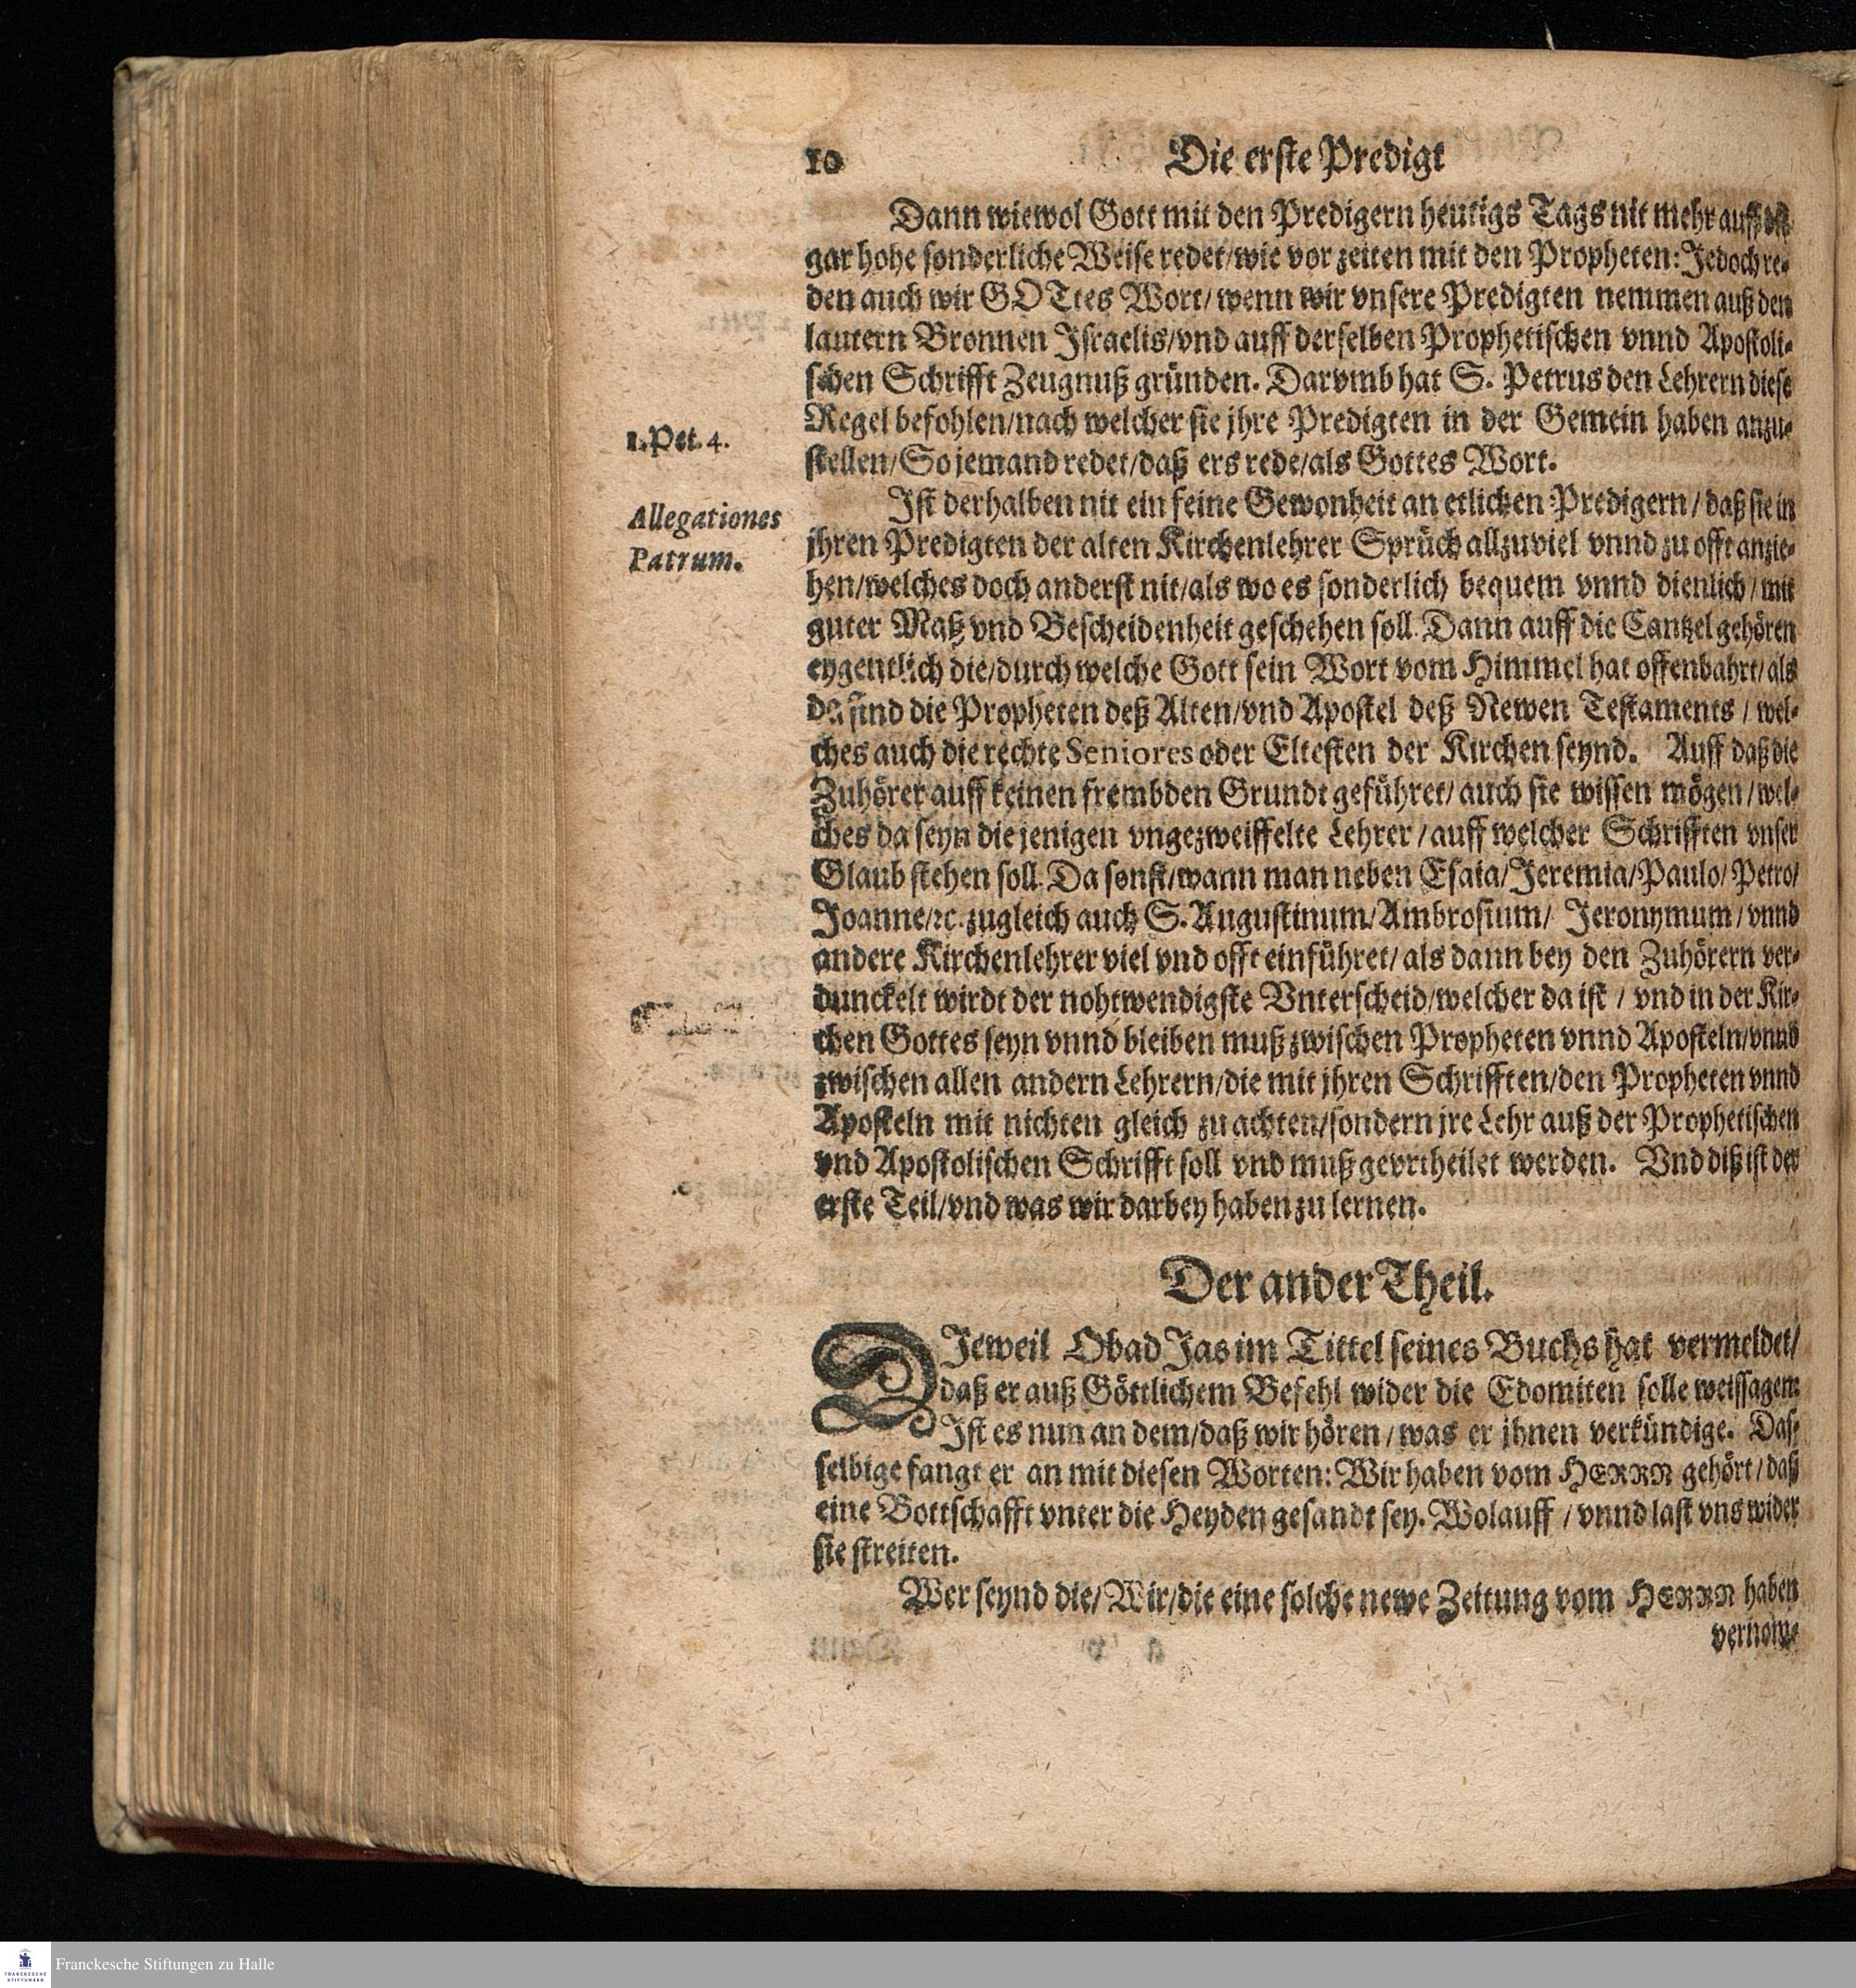 10 Die erste Predigt
Dann wiewol Gott mit den Predigern heutigs Tags nit mehr auff
gar hohe sonderliche Weise redet/wie vor zeiten mit den Propheten: Jedoch re-
den auch wir GOTtes Wort/ wenn wir vnsere Predigten nemmen auß den
lautern Bronnen Israelis/vnd auff derselben Prophetischen vnnd Apostoli-
schen Schrifft Zeugnuß gründen. Darvmb hat S. Petrus den Lehrern diese
Regel befohlen/nach welcher sie jhre Predigten in der Gemein haben anzu-
1. Pet. 4.
stellen/So jemand redet/daß ers rede/als Gottes Wort.
Ist derhalben nit ein feine Gewonheit an etlichen Predigern/ daß sie in
Allegationes
Patrum.
jhren Predigten der alten Kirchenlehrer Sprüch allzuviel vnnd zu offt anzie-
hen/welches doch anderst nit/als wo es sonderlich bequem vnnd dienlich/ mit
guter Maß vnd Bescheidenheit geschehen soll. Dann auff die Cantzel gehören
eygentlich die/durch welche Gott sein Wort vom Himmel hat offenbahrt/als
da sind die Propheten deß Alten/vnd Apostel deß Newen Testaments/ wel-
ches auch die rechte Seniores oder Eltesten der Kirchen seynd. Auff daß die
Zuhörer auff keinen frembden Grundt geführet/ auch sie wissen mögen/wel-
ches da seyn die jenigen vngezweiffelte Lehrer/auff welcher Schrifften vnser
Glaub stehen soll. Da sonst/wann man neben Esaia/Jeremia/Paulo/Petro/
Joanne/ꝛc. zugleich auch S. Augustinum/Ambrosium/ Jeronymum/vnnd
andere Kirchenlehrer viel vnd offt einführet/ als dann bey den Zuhörern ver-
dunckelt wirdt der nohtwendigste Vnterscheid/welcher da ist/ vnd in der Kir-
chen Gottes seyn vnnd bleiben muß zwischen Propheten vnnd Aposteln/vnnd
zwischen allen andern Lehrern/die mit jhren Schrifften/den Propheten vnnd
Aposteln mit nichten gleich zu achten/sondern jre Lehr auß der Prophetischen
vnd Apostolischen Schrifft soll vnd muß gevrtheilet werden. Vnd diß ist der
erste Teil/vnd was wir darbey haben zu lernen.
Der ander Theil.
DIeweil ObadJas im Tittel seines Buchs hat vermeldet/
daß er auß Göttlichem Befehl wider die Edomiten solle weissagen:
Ist es nun an dem/daß wir hören/was er jhnen verkündige. Das-
selbige fangt er an mit diesen Worten: Wir haben vom HERRN gehört/daß
eine Bottschafft vnter die Heyden gesandt sey. Wolauff/ vnnd last vns wider
sie streiten.
Wer seynd die/Wir/die eine solche newe Zeitung vom HERRN haben
vernom-
Franckesche Stiftungen zu Halle
FRANCKESCHE
STIFTUNGEN